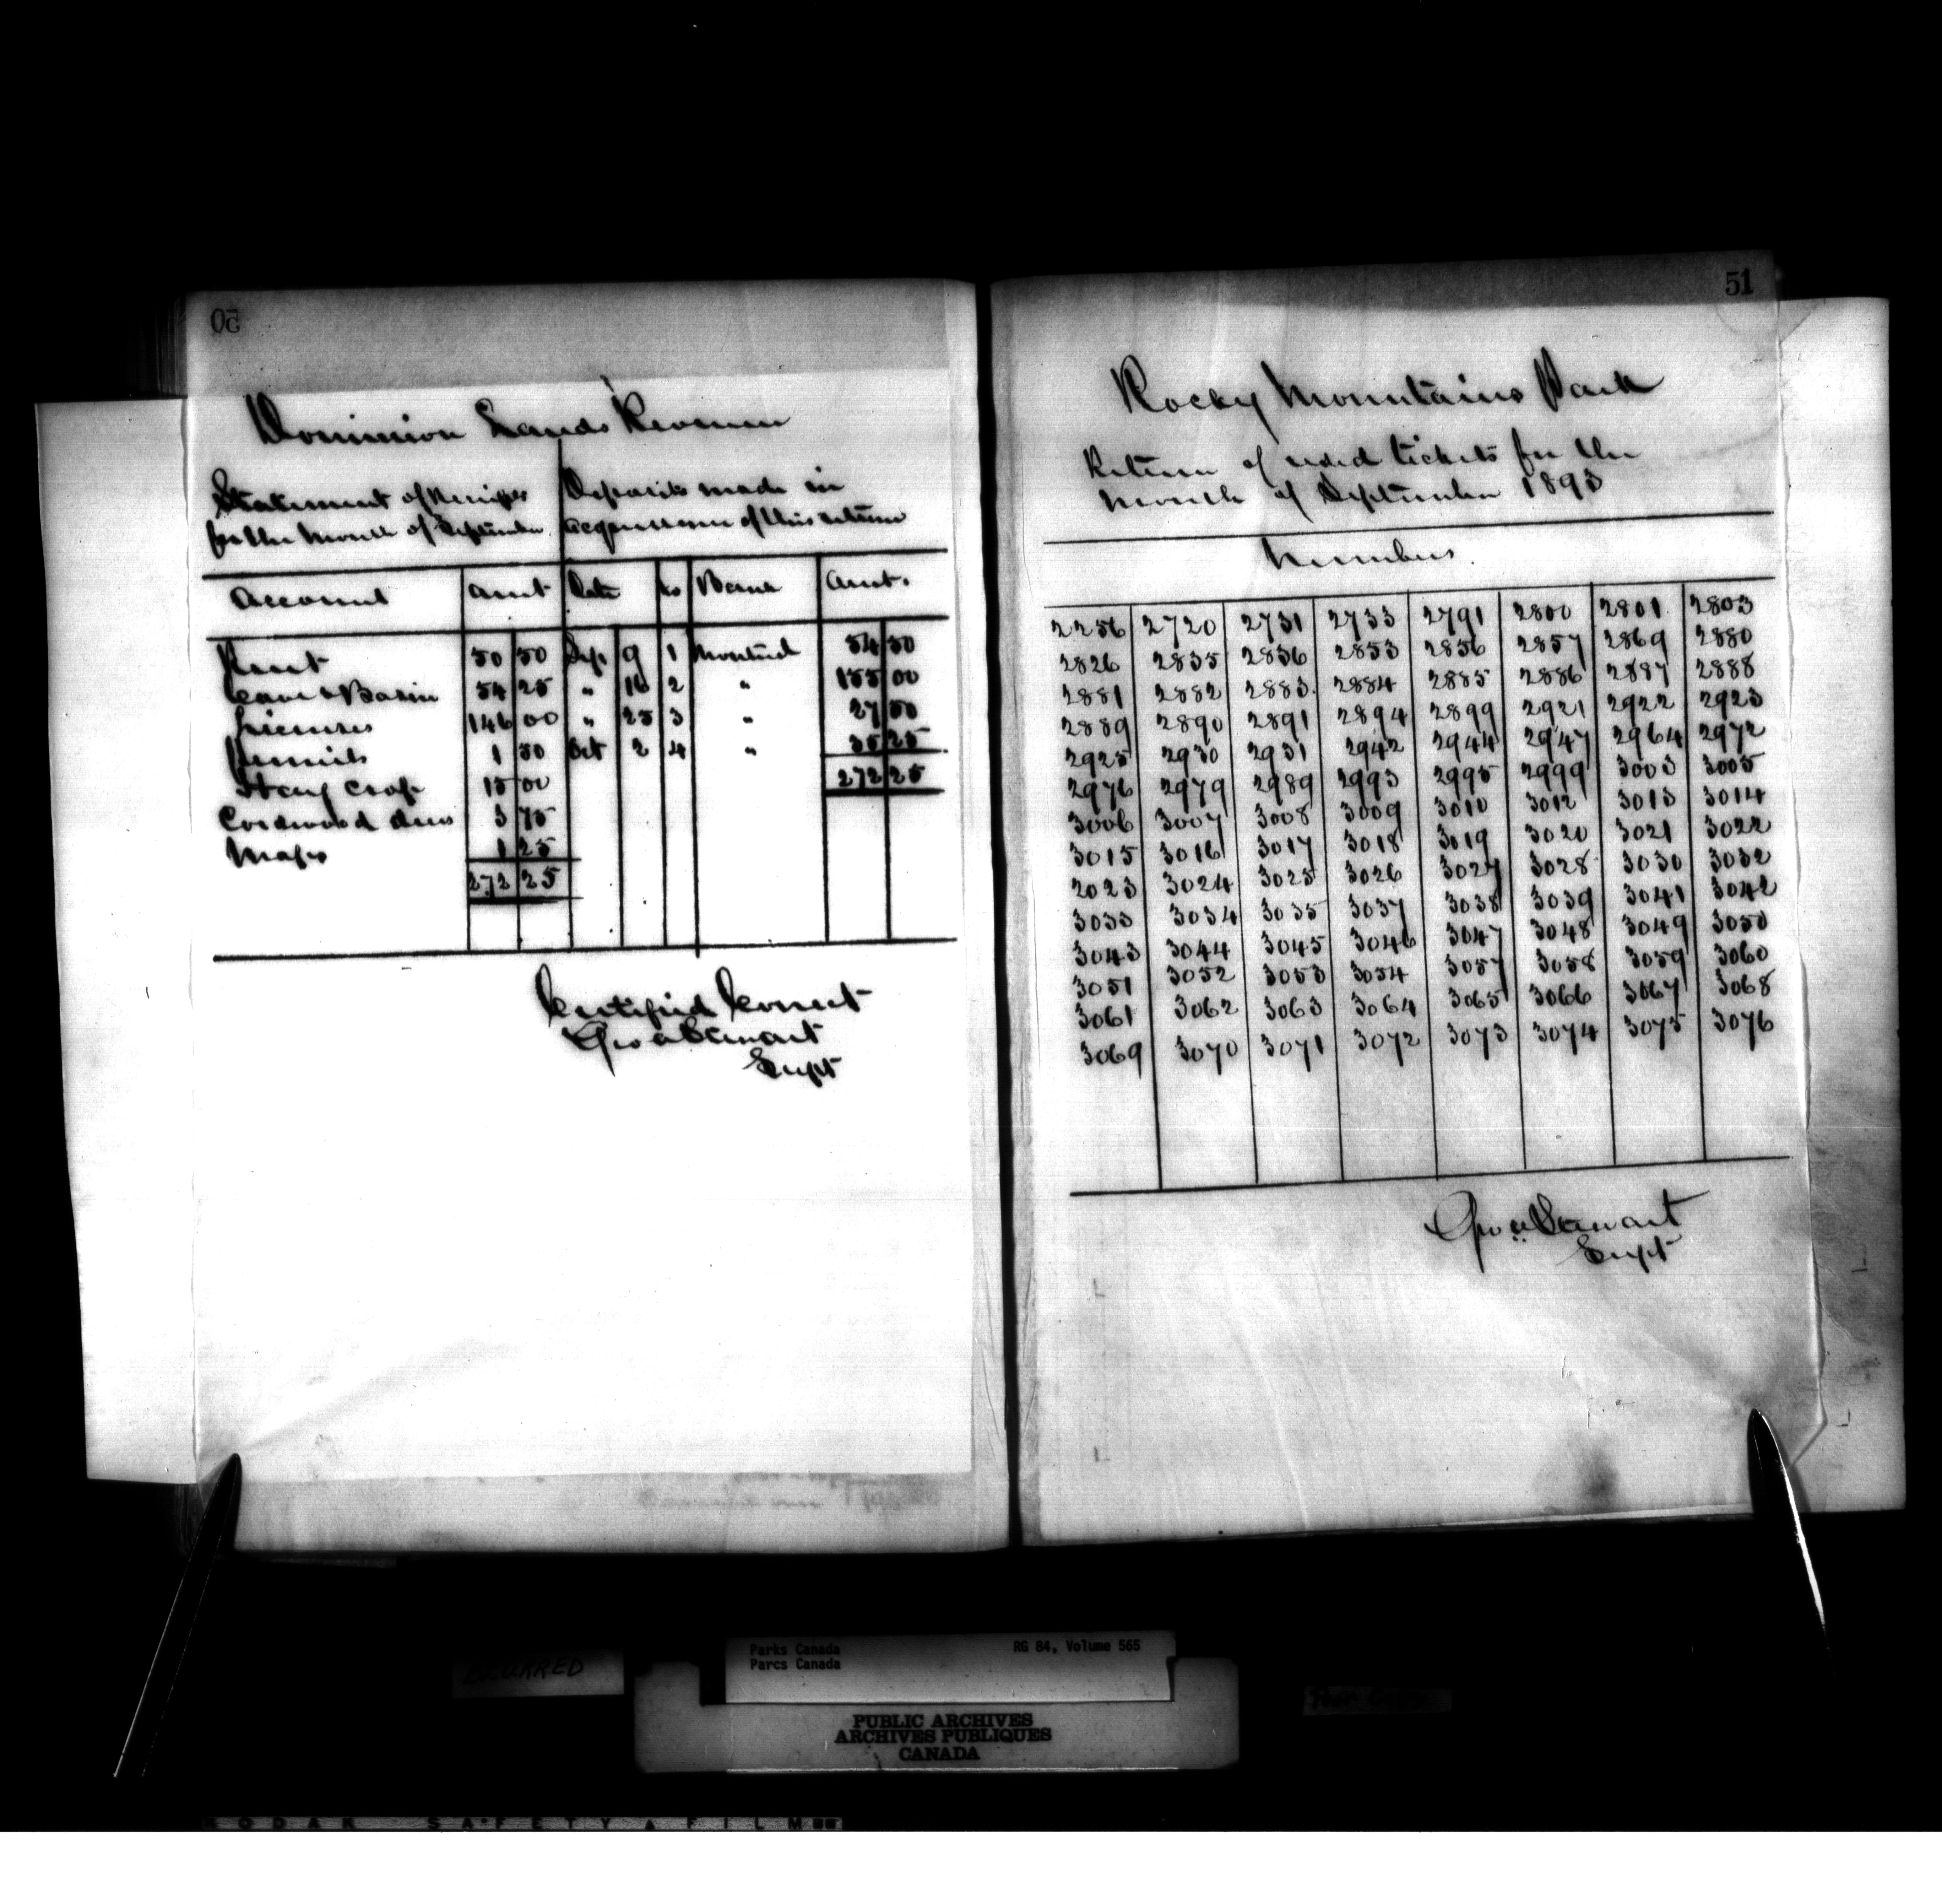 50
Dominion Lands Revenue
Statement of Receipts
for the Month of September
Deposits made in
acquittance of this return
Account Amt Date No Bank Amt.
Rent 50 50 Sep 9 1 Montreal 54 50
Cave & Basin 54 25 " 16 2 " 155 00
Licenses 146 00 " 25 3 " 27 50
Permits 1 50 Oct 2 4 " 35 25
Hay Crop 15 00 272 25
Cordwood dues 3 75
Maps 1 25
272 25
Certified Correct
Geo A Stewart
Supt
51
Rocky Mountains Park
Return of used tickets for the
Month of September 1893
Numbers
2256 2720 2731 2733 2791 2800 2801 2803
2826 2835 2836 2853 2856 2857 2869 2880
2881 2882 2883 2884 2885 2886 2887 2888
2889 2890 2891 2894 2899 2921 2922 2923
2925 2930 2931 2942 2944 2947 2964 2972
2976 2979 2989 2993 2995 2999 3003 3005
3006 3007 3008 3009 3010 3012 3013 3014
3015 3016 3017 3018 3019 3020 3021 3022
2023 3024 3025 3026 3027 3028 3030 3032
3033 3034 3035 3037 3038 3039 3041 3042
3043 3044 3045 3046 3047 3048 3049 3050
3051 3052 3053 3054 3057 3058 3059 3060
3061 3062 3063 3064 3065 3066 3067 3068
3069 3070 3071 3072 3073 3074 3075 3076
Geo A Stewart
Supt
BLURRED
Parks Canada
Parcs Canada
RG 84, Volume 565
PUBLIC ARCHIVES
ARCHIVES PUBLIQUES
CANADA
KODAK SAFETY FILM